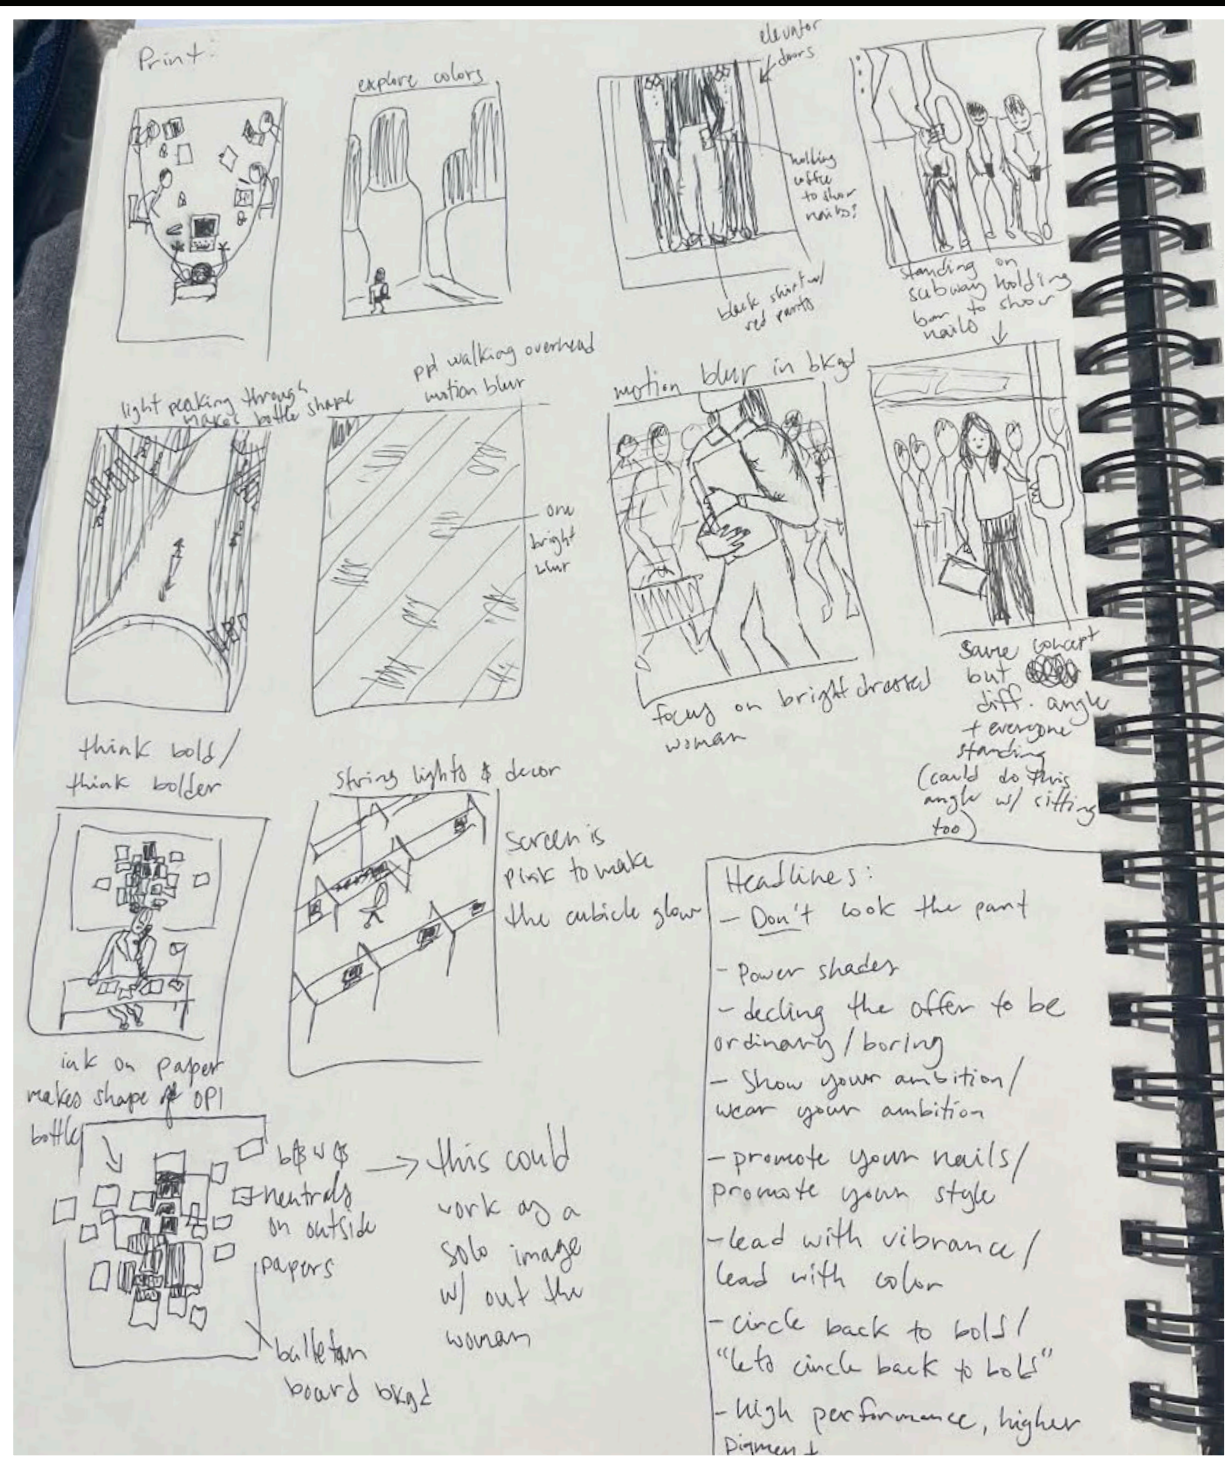 Print:
explore colors
elevator
doors
holding
coffee
to show
nails?
black shirt w/
red pants
standing on
subway holding
bar to show
nails
light peaking through
makes bottle shape
ppl walking overhead
motion blur
one
bright
blur
motion blur in bkgd
focus on bright dressed
woman
same concept
but
diff. angle
+ everyone
standing
(could do this
angle w/ sitting
too)
think bold/
think bolder
string lights & decor
screen is
pink to make
the cubicle glow
ink on paper
makes shape of OPI
bottle
b&w &
neutrals
on outside
papers
bulletan
board bkgd
this could
work as a
solo image
w/ out the
woman
Headlines:
- Don't look the part
- Power shades
- decling the offer to be
ordinary/boring
- Show your ambition/
wear your ambition
- promote your nails/
promote your style
- lead with vibrance/
lead with color
- circle back to bold/
"lets circle back to bold"
- High performance, higher
pigment